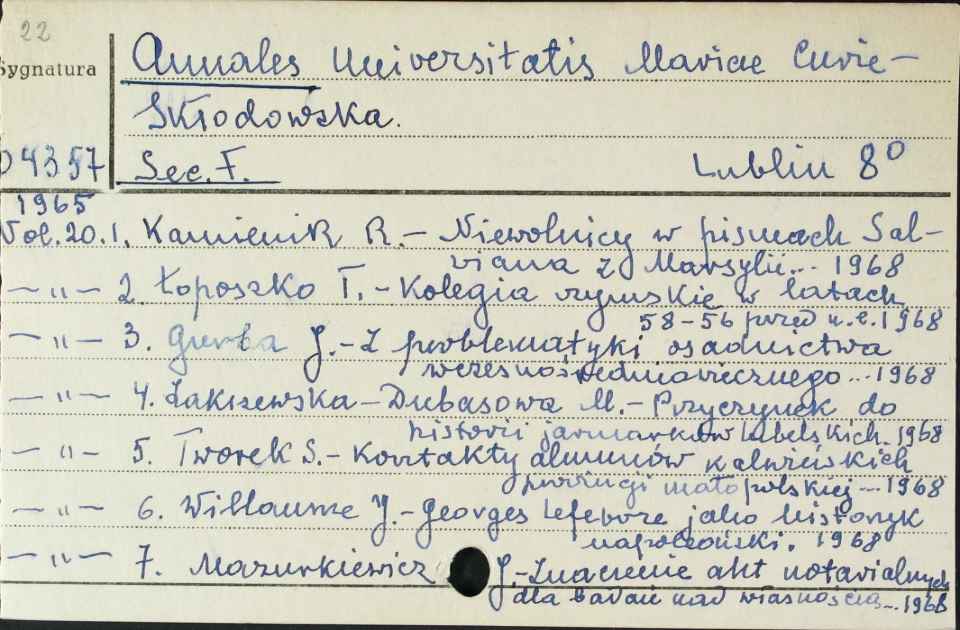 22
Sygnatura
Annales Universitatis Mariae Curie-
Skłodowska.
04357 Sec. F. Lublin 8°
1965
Vol. 20. 1. Kamienik R. - Niewolnicy w pismach Sal-
viana z Marsylii... 1968
— " — 2. Łoposzko T. - Kolegia rzymskie w latach
58-56 przed n.e. 1968
— " — 3. Gurba J. - Z problematyki osadnictwa
wczesnośredniowiecznego... 1968
— " — 4. Łakszewska-Dubasowa M. - Przyczynek do
historii jarmarków lubelskich. 1968
— " — 5. Tworek S. - Kontakty alumnów kalwińskich
prowincji małopolskiej... 1968
— " — 6. Willaume J. - Georges Lefebvre jako historyk
napoleoński. 1968
— " — 7. Mazurkiewicz J. - Znaczenie akt notarialnych
dla badań nad własnością... 1968